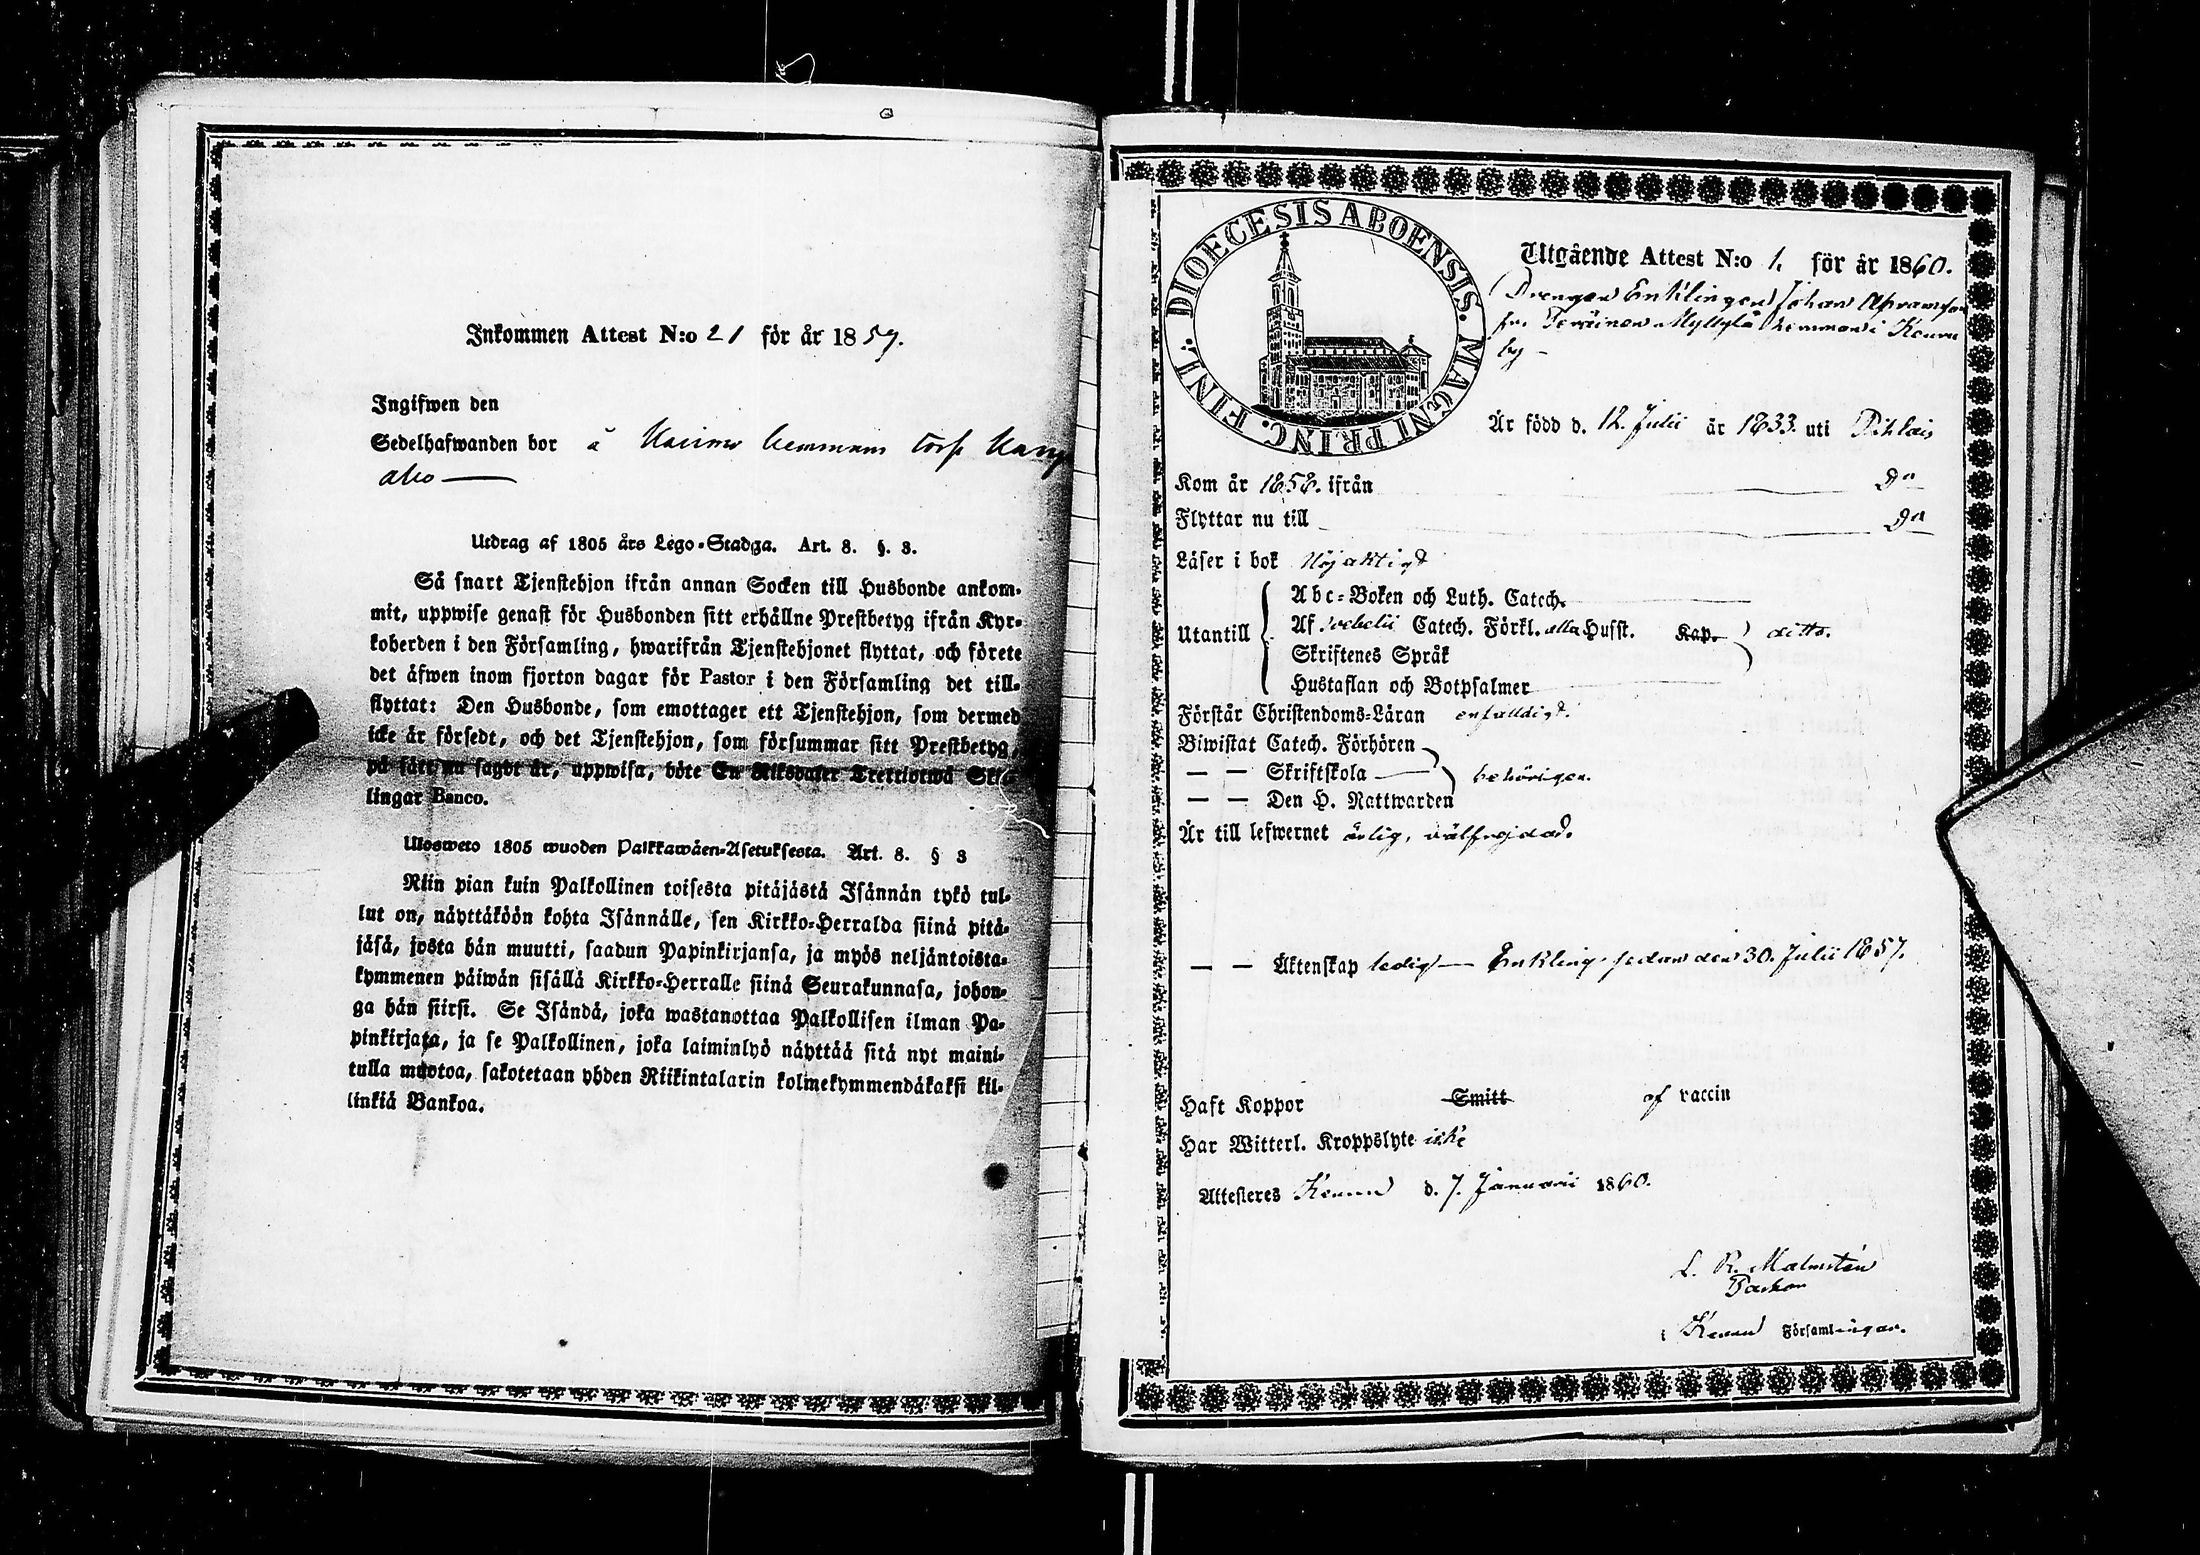 Inkommen Attest N:o 21 för år 1859.
Ingifwen den
Sedelhafwanden bor å hemmans torp
aho
Utdrag af 1805 års Lego-Stadga. Art. 8. §. 3.
Så snart Tjenstehjon ifrån annan Socken till Husbonde ankom-
mit, uppwise genast för Husbonden sitt erhållne Prestbetyg ifrån Kyr-
koherden i den Församling, hwarifrån Tjenstehjonet flyttat, och förete
det äfwen inom fjorton dagar för Pastor i den Församling det till-
flyttat: Den Husbonde, som emottager ett Tjenstehjon, som dermed
icke är försedt, och det Tjenstehjon, som försummar sitt Prestbetyg,
på sätt nu sagdt är, uppwisa, böte En Riksdaler Trettiotwå Skil-
lingar Banco.
Ulosweto 1805 wuoden Palkkawäen-Asetuksesta. Art. 8. § 3
Niin pian kuin Palkollinen toisesta pitäjästä Isännän tykö tul-
lut on, näyttäköön kohta Isännälle, sen Kirkko-Herralda siinä pitä-
jäsä, josta hän muutti, saadun Papinkirjansa, ja myös neljäntoista-
kymmenen päiwän sisällä Kirkko-Herralle siinä Seurakunnasa, johon-
ga hän siirsi. Se Isändä, joka wastanottaa Palkollisen ilman Pa-
pinkirjata, ja se Palkollinen, joka laiminlyö näyttää sitä nyt maini-
tulla muotoa, sakotetaan yhden Riikintalarin kolmekymmendäkaksi kil-
linkiä Bankoa.
DIOECESIS ABOENSIS. MAGNI PRINC. FINL.
Utgående Attest N:o 1. för år 1860.
Drengen Enklingen Johan Abramsson
fr. Myllylä hemman i Keuru
by
Är född d. 12. Julii år 1833. uti Pihlais
Kom år 1858. ifrån Do
Flyttar nu till Do
Läser i bok Nöjaktigt
Abc-Boken och Luth. Catech.
Utantill Af Svebelii Catech. Förkl. alla Husst. Kap. ditto.
Skriftenes Språk
Hustaflan och Botpsalmer
Förstår Christendoms-Läran enfaldigt.
Biwistat Catech. Förhören
— — Skriftskola behörigen.
— — Den H. Nattwarden
Är till lefwernet ärlig, välfrejdad.
— — Äktenskap ledig — Enkling sedan den 30. Julii 1857.
Haft Koppor Smitt af vaccin
Har Witterl. Kroppslyte icke
Attesteres Keuru d. 7. Januarii 1860.
L. R. Malmstén
Pastor
i Keuru Församlingar.